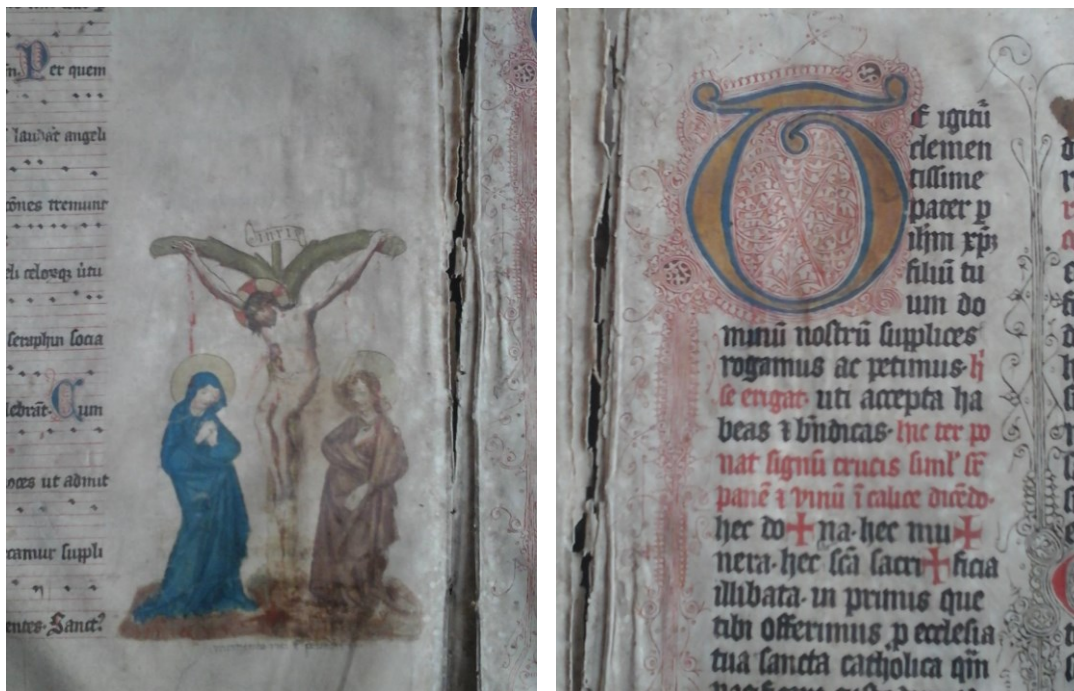 Per quem
laudāt angeli
tōnes tremunt
eli celorꝙ ūtu
seraphin socia
lebrāt. Cum
oces ut admit
camur suppli
entes. Sanct?
INRI
TE igitū
clemen
tissime
pater p
ihm xpm
filiū tu
um do
minū nostrū supplices
rogamus ac petimus. h
se erigat. uti accepta ha
beas ⁊ bn̄dicas. hic ter po
nat signū crucis siml' sr̄
panē ⁊ vinū ī calice dicēdo.
hec do✚na. hec mu✚
nera. hec scā sacri✚ficia
illibata. in primis que
tibi offerimus p ecclesia
tua sancta catholica qm̄